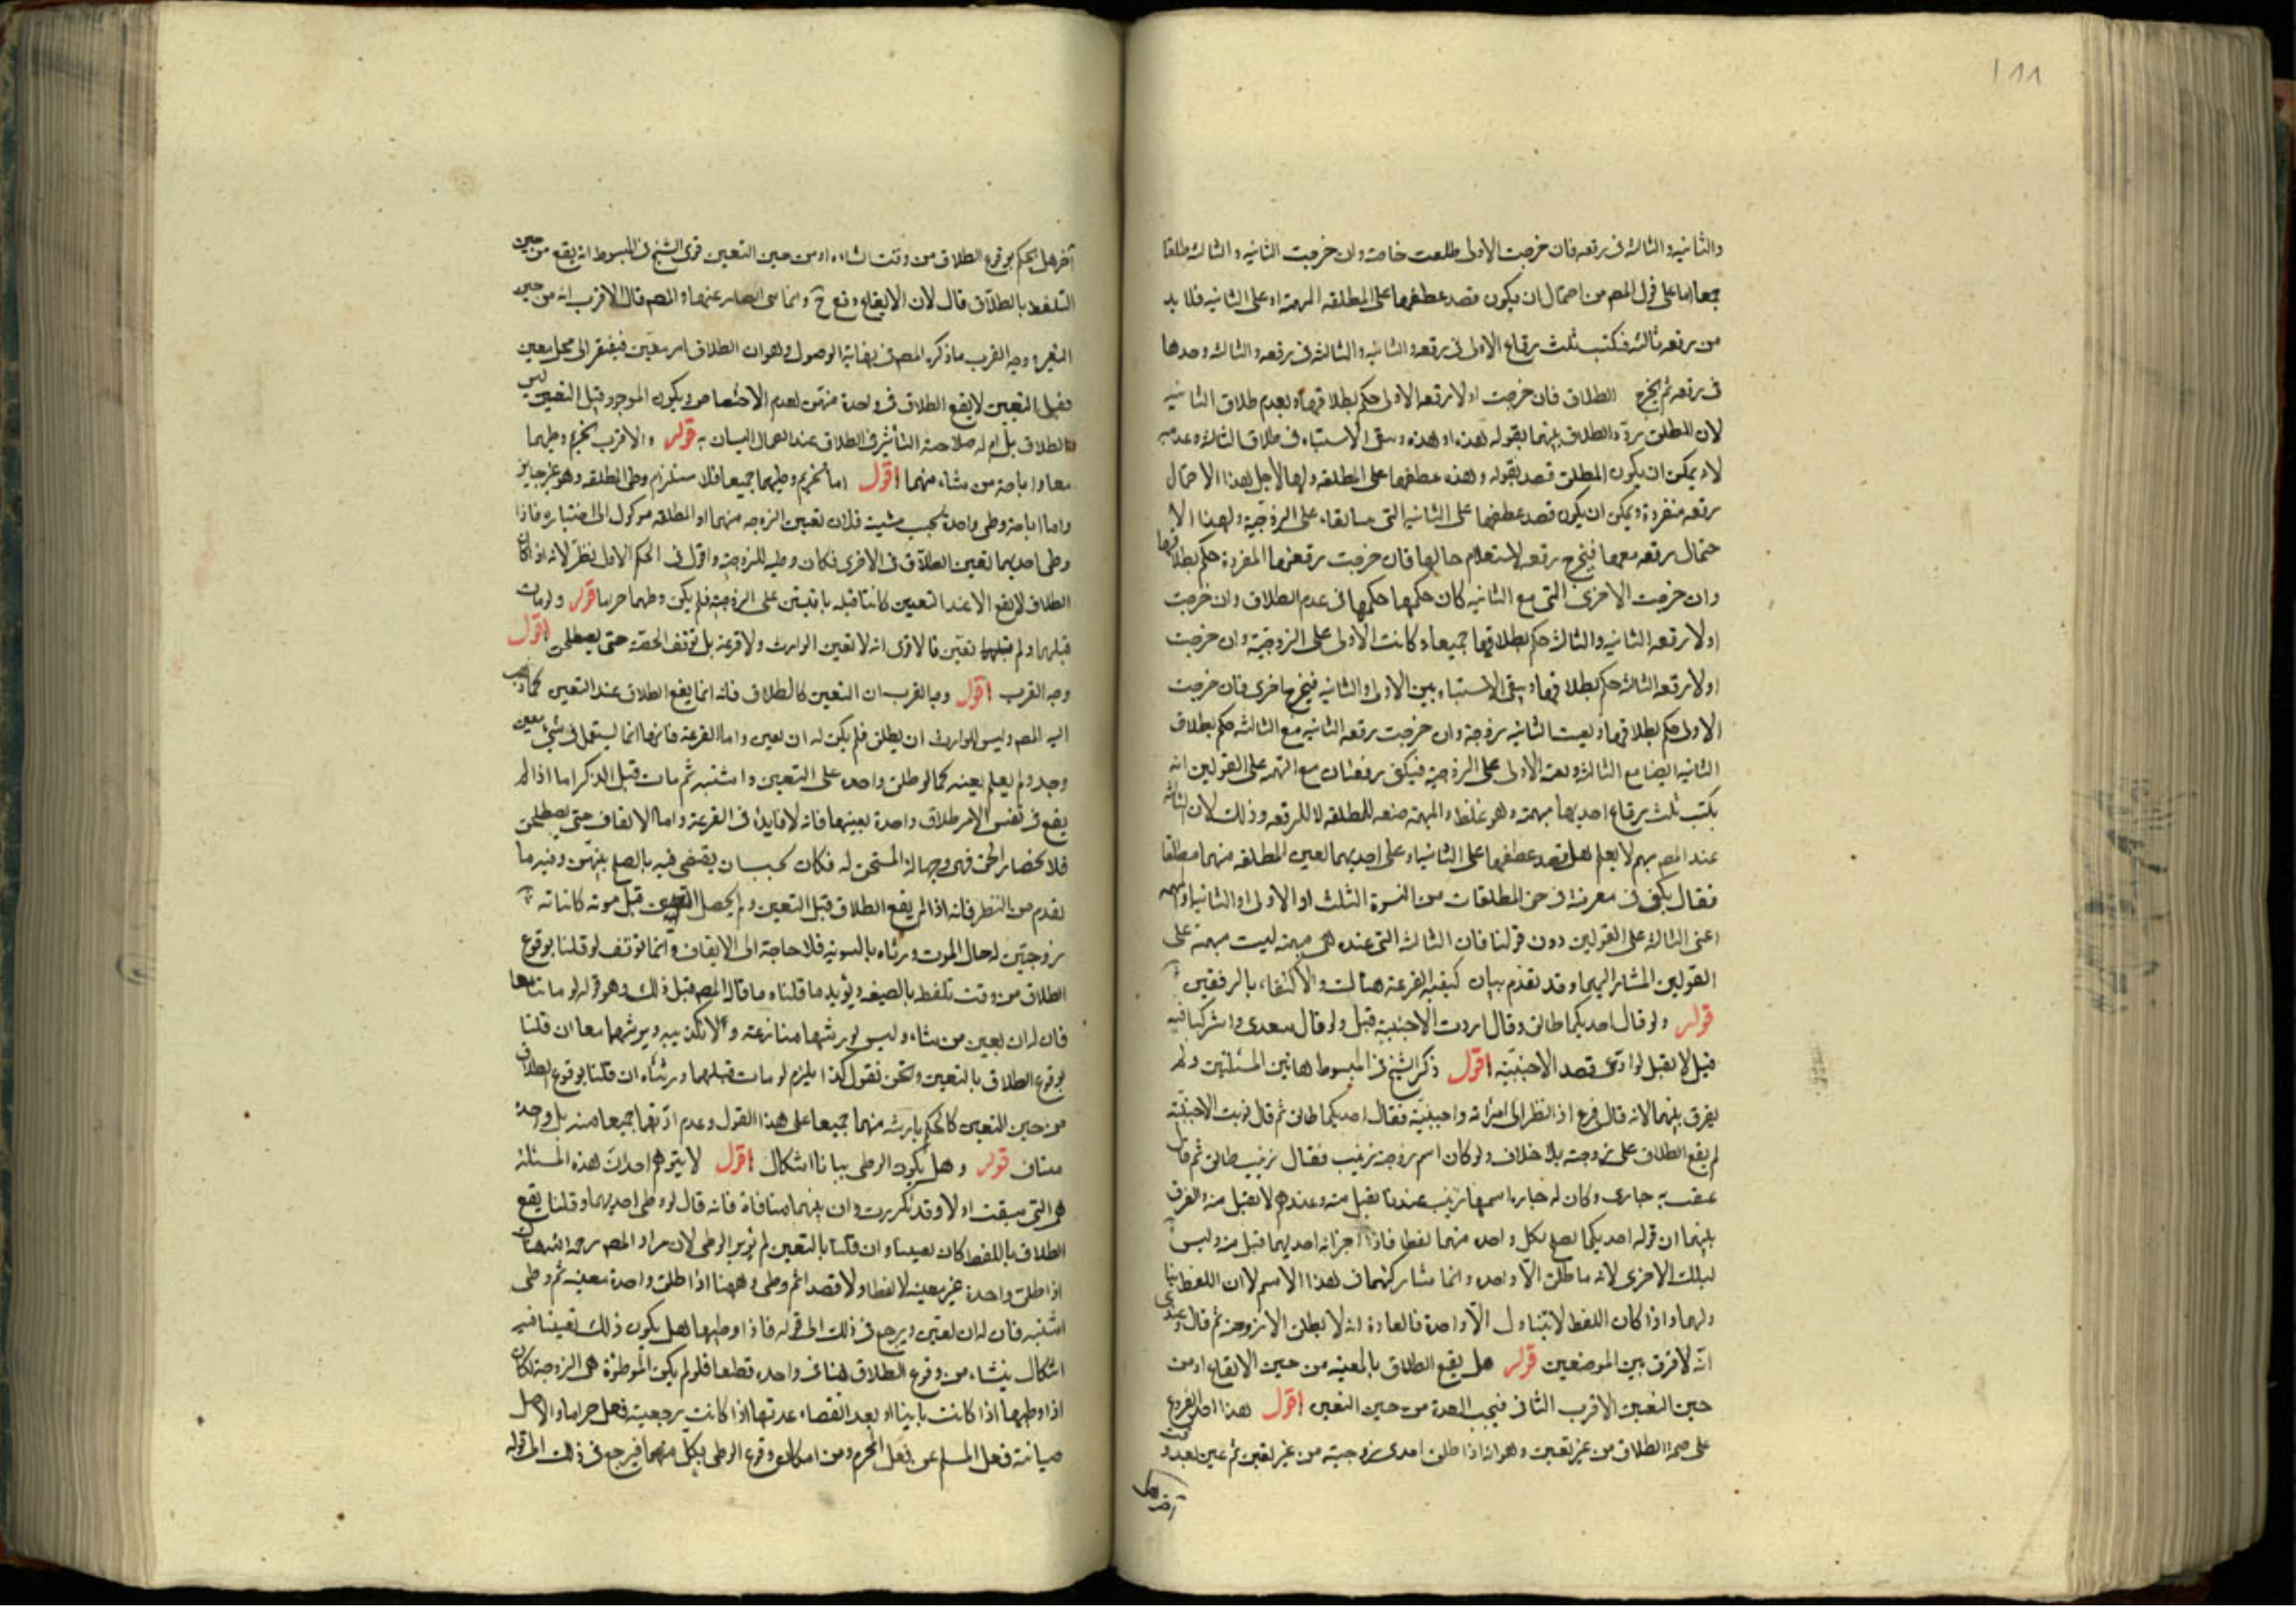 ١٨٨
والثانيه والثالثه فى رقعه فان خرجت الاولى طلقت خاصة وان خرجت الثانيه والثالثه طلقتا
جمعا اما على قول المصم من احتمال ان يكون قصد عطفها على المطلقه المبهمة او على الثانيه فلا بد
من رقعه ثالثه فتكتب ثلث رقاع الاولى فى رقعه والثانيه والثالثه فى رقعه والثالثه وحدها
فى رقعه ثم يخرج الطلاق فان خرجت اولا رقعه الاولى حكم بطلاقها وبعدم طلاق الثانيه
لان المطلق ردّد الطلاق بينهما بقوله هذه او هذه وبقى الاشتباه فى طلاق الثالثه وعدمه
لانه يمكن ان يكون المطلق قصد بقوله وهذه عطفها على المطلقه ولها لاجل هذا الاحتمال
رقعه منفردة ويمكن ان يكون قصد عطفها على الثانيه التى بقاء على الزوجية ولهذا الا
حتمال رقعه معها فيخرج رقعه لاستعلام حالها فان خرجت رقعتها المفردة حكم بطلاقها
وان خرجت الاخرى التى مع الثانيه كان حكمها حكمها فى عدم الطلاق وان خرجت
اولا رقعه الثانيه والثالثه حكم بطلاقهما جميعا وكانت الاولى على الزوجية وان خرجت
اولا رقعه الثالثه حكم بطلاقها وبقى الاشتباه بين الاولى والثانيه فيخرج اخرى فان خرجت
الاولى حكم بطلاقها وبقيت الثانيه زوجة وان خرجت رقعه الثانيه مع الثالثه حكم بطلاق
الثانيه ايضا مع الثالثه وبقيت الاولى على الزوجية فيكفى رقعتان مع المبهمة على القولين انه
يكتب ثلث رقاع احديها مبهمة وهو غلط والمبهمة صفه للمطلقه لا للرقعه وذلك لان الثالثه
عند المصم مبهم لا يعلم هل قصد عطفها على الثانيه او على احديهما لعين المطلقه منهما مطلقا
فقال يكفى فى معرفة فى حق المطلقات من النسوة الثلث او الاولى او الثانيه او المبهمة
اعنى الثالثه على القولين دون قولنا فان الثالثه التى عنده هى مبهمة ليست مبهمة على
القولين المشار اليهما وقد تقدم بيان كيفيه القرعة هناك والاكتفاء بالرقعتين
قوله ولو قال احديكما طالق وقال اردت الاجنبية قبل ولو قال سعدى واشتركا فيه
قيل لا يقبل لو ادعى قصد الاجنبيّه اقول ذكر الشيخ فى المبسوط هاتين المسئلتين ولم
يفرق بينهما لانه قال فرع اذا نظر الى امراته واجنبيّة فقال احديكما طالق ثم قال نويت الاجنبيّة
لم يقع الطلاق على زوجته بلا خلاف ولو كان اسم زوجة زينب فقال زينب طالق ثم قال
عقيبه جارى وكان له جاره اسمها زينب عندنا يقبل منه وعندهم لا يقبل منه والفرق
بينهما ان قوله احديكما يصلح لكل واحد منهما لفظا فاذا اخبر انه احديهما قبل منه وليس
كذلك الاخرى لانه ما طلق الّا واحد وانما مشاركتهما فى هذا الاسم لا ان اللفظ
ولهما واذا كان اللفظ لا يتناول الّا واحدة فالعادة انه لا يطلق الا زوجته ثم قال وعندى
انّه لا فرق بين الموضعين قوله هل يقع الطلاق بالمعينه من حين الايقاع او من
حين التعين الاقرب الثانى فيجب العدة من حين التعين اقول هذا احد الفروع
على صحه الطلاق من غير تعيين وهو انه اذا طلق احدى زوجيته من غير تعين ثم عين بعد وقت
آخر هل
آخر هل يحكم بوقوع الطلاق من وقت انشاءه او من حين التعين قوى الشيخ فى المبسوط انه يقع من حين
التلفظ بالطلاق قال لان الايقاع وقع ح وانما من عنهما والمصم قال الاقرب انه من حين
التعين وجه القرب ما ذكره المصم فى نهاية الوصول وهو ان الطلاق امر معين فيفتقر الى محل معين
فقبل التعين لا يقع الطلاق فى واحدة منهن لعدم الاختصاص ويكون الموجود قبل التعين ليس
الطلاق بل ام له صلاحية التأثير فى الطلاق عند اتصال البيان به قوله والاقرب تحريم وطيهما
معا واباحة من شاء منهما اقول اما تحريم وطيهما جميعا فلاستلزام وطى المطلقه وهو غير جايز
واما اباحة وطى واحدة بحسب مشيته فلان تعين الزوجه منهما او المطلقه موكول الى اختياره فاذا
وطى احديهما تعين الطلاق فى الاخرى فكان وطيه للزوجة واقول فى الحكم الاول نظر لانه اذا كان
الطلاق لا يقع الا عند التعيين كانتا قبله باقيتين على الزوجية فلم يكن وطيهما حراما قوله ولو مات
قبلهما ولم تعين فالاقوى انه لا تعين الوارث ولا قرعة بل توقف الحصة حتى يصطلحن اقول
وجه القرب اقول وجه القرب ان التعين كالطلاق فانه انما يقع الطلاق عند التعين كما ذهب
اليه المصم وليس للوارث ان يطلق فلم يكن له ان يعين واما القرعة فانها انما تستعمل فى شئ معين
وجد ولم يعلم بعينه كما لو طلق واحده على التعيين واشتبه ثم مات قبل الذكر اما اذا لم
يقع فى نفس الامر طلاق واحدة بعينها فانه لا فايدة فى القرعة واما الايقاف حتى يصطلحن
فلانحصار الحق فيهن وجهالة المستحق له فكان يقضى فيه بالصلح بينهن وفيه ما
تقدم من النظر فانه اذا لم يقع الطلاق قبل التعين ولم يحصل التعين قبل موته كانتا
زوجتين له حال الموت ورثاه بالسويه فلا حاجة الى الايقاف وانما توقف لو قلنا بوقوع
الطلاق من وقت تلفظ بالصيغه ويؤيد ما قلناه ما قاله المصم قبل ذلك وهو قوله لو ماتتا معا
فان له ان يعين من شاء وليس لورثتها منازعته ولا تكذيبه ويورثهما معا ان قلنا
بوقوع الطلاق بالتعين ونحن نقول كذا يلزم لو مات قبلهما ورثتاه ان قلنا بوقوع الطلاق
من حين التعين كالحكم بارثه منهما جميعا على هذا القول وعدم ارثهما جميعا منه بل وحده
مناف قوله وهل يكون الوطى بيانا اشكال اقول لا يتوهم احد ان هذه المسئله
هى التى سبقت اولا وقد تكررت وان بينهما منافاة فانه قال لو وطى احديهما وقلنا يقع
الطلاق باللفظ كان تعيينا وان قلنا بالتعين لم يؤثر الوطى لان مراد المصم رحمه الله هناك
اذا طلق واحدة غير معينه لا لفظا ولا قصدا ثم وطى وههنا اذا طلق واحدة معينه ثم وطى
اشتبه فان له ان تعين ويرجع فى ذلك الى قوله فاذا وطيها هل يكون ذلك تعيينا فيه
اشكال ينشاء من وقوع الطلاق هنا على واحده قطعا فلو لم يكن الموطوئة هى الزوجة لكان
اذا وطيها اذا كانت باينا او بعد انقضاء عدتها اذا كانت رجعيته فعل حراما والاصل
صيانة فعل المسلم عن فعل المحرم ومن امكان وقوع الوطى بكل منهما فيرجع فى ذلك الى قوله